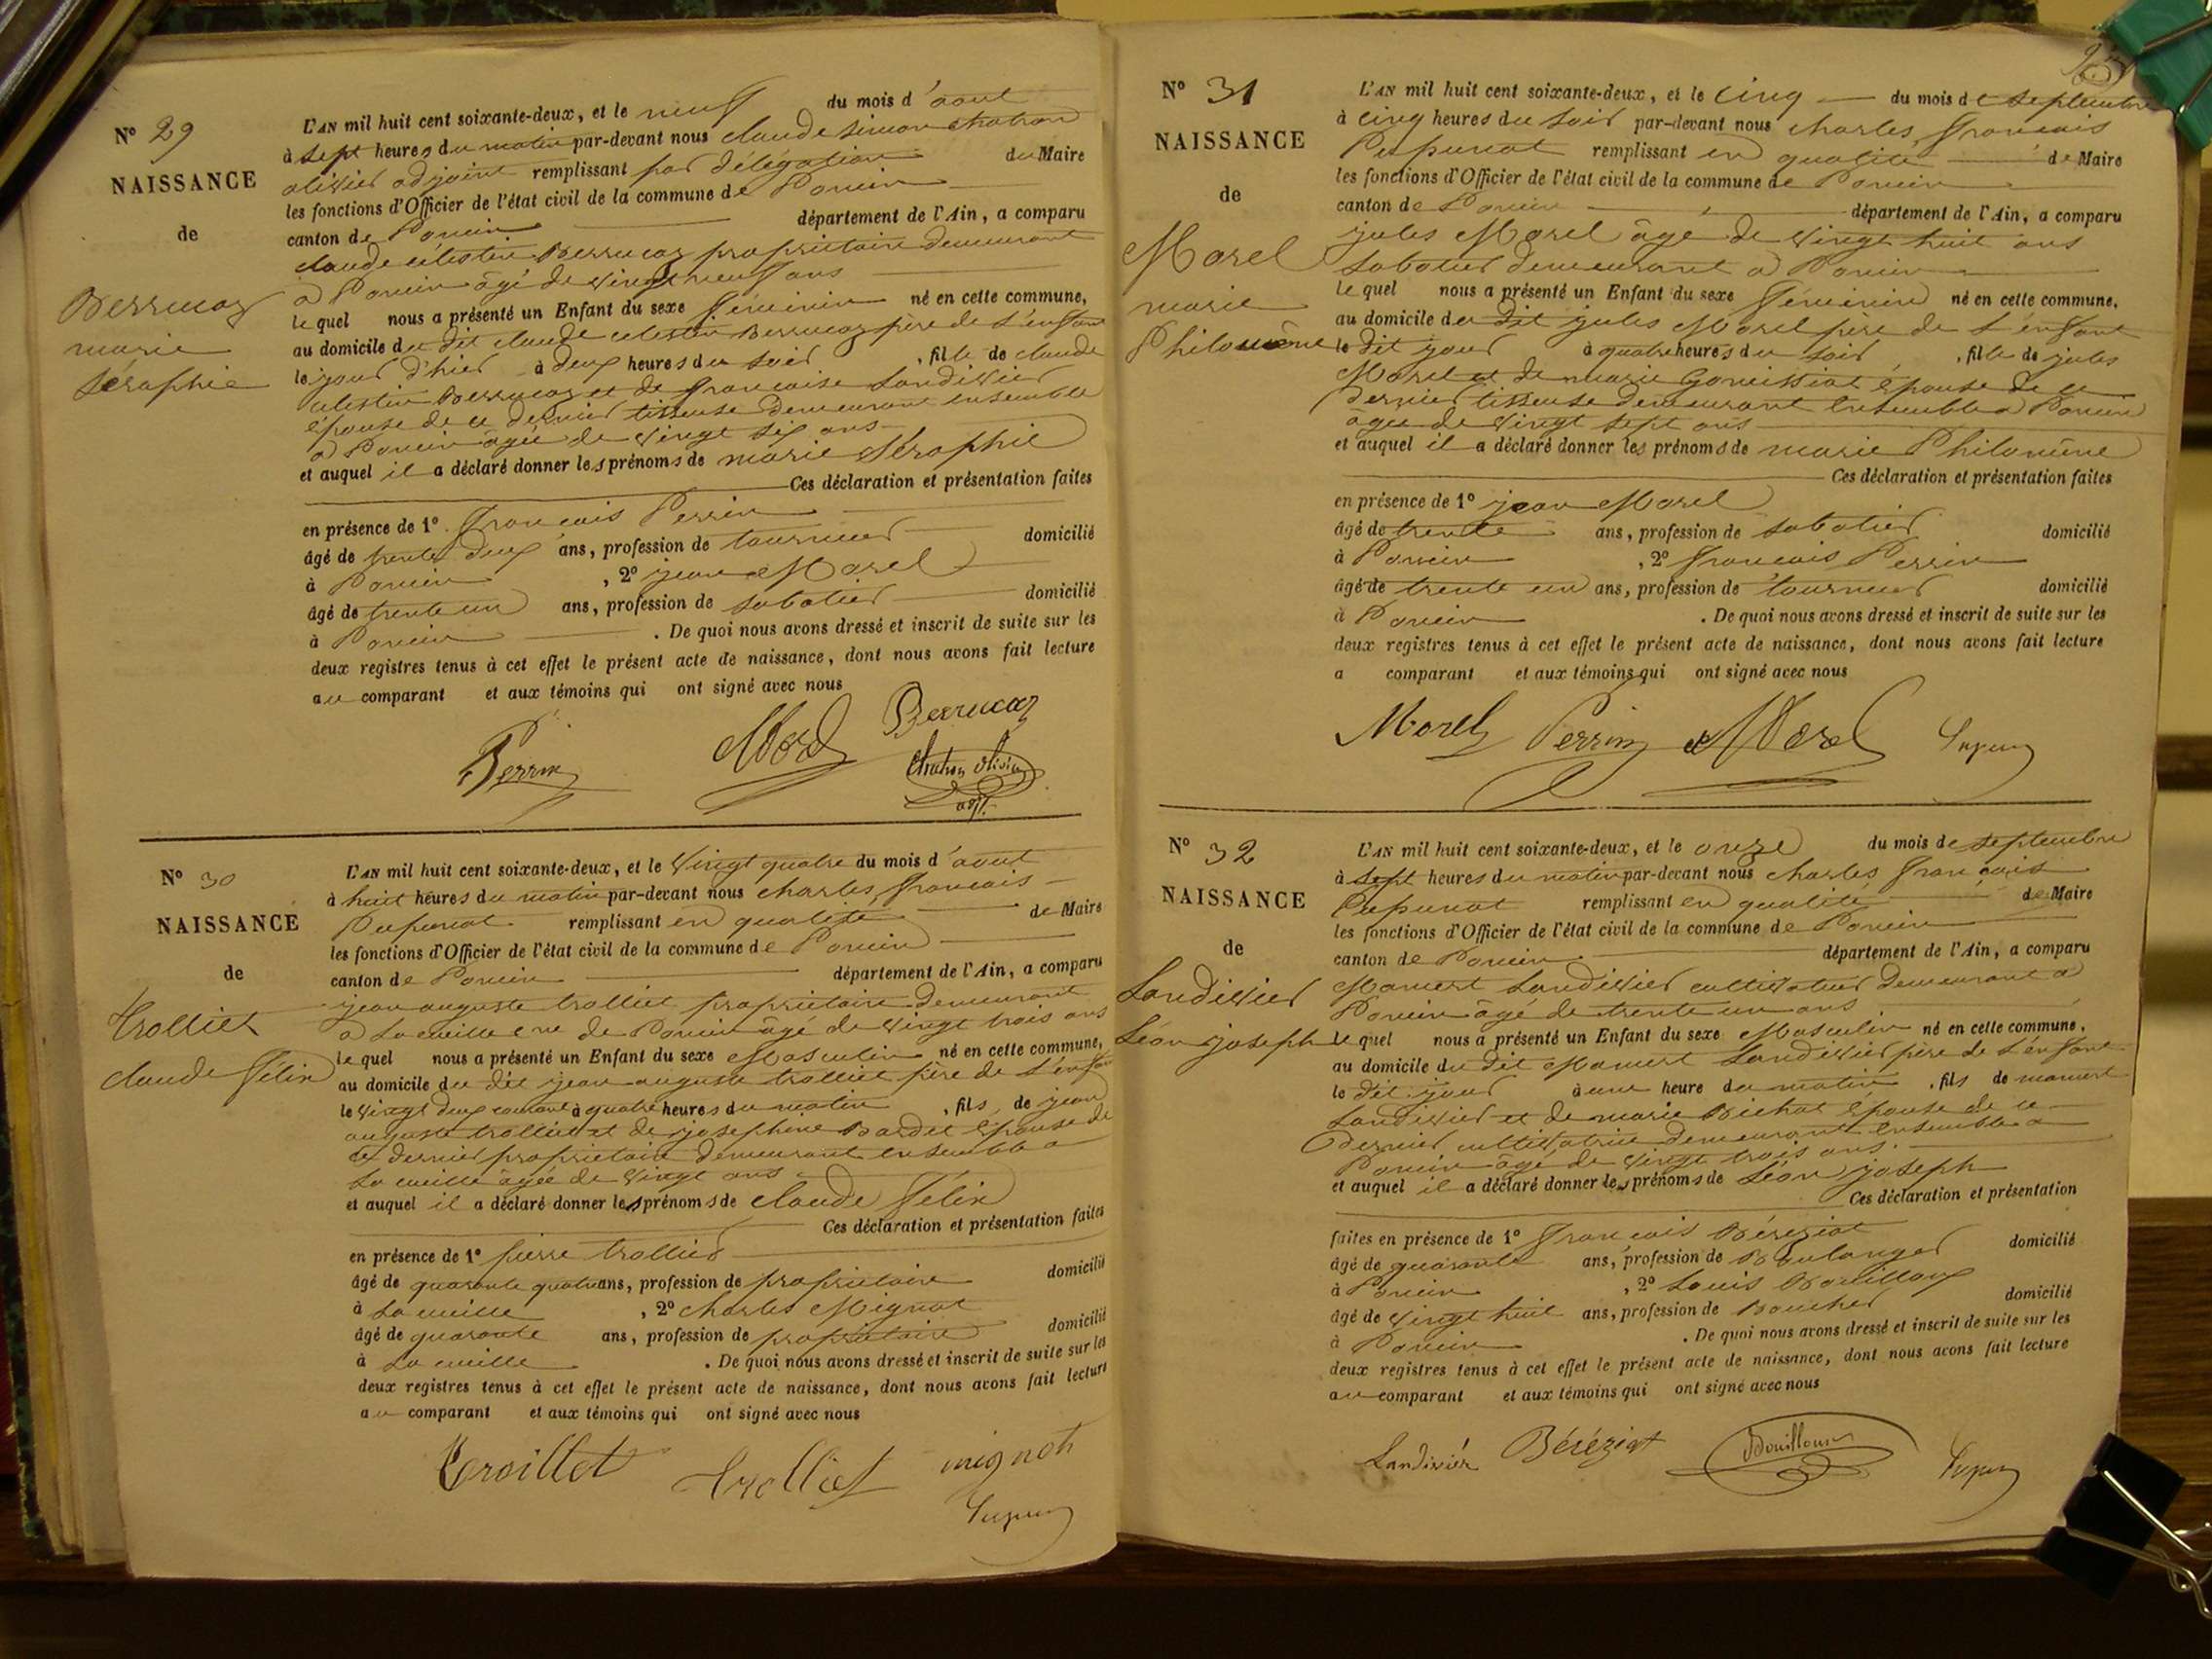 N° 29
NAISSANCE
de
Berrucaz
marie
Séraphie
L'AN mil huit cent soixante-deux, et le neuf du mois d'aout
à sept heures du matin par-devant nous claude Simon chatron
olivier adjoint remplissant par délégation du Maire
les fonctions d'Officier de l'état civil de la commune de Poncin
canton de Poncin département de l'Ain, a comparu
claude célestin Berrucaz propriétaire demeurant
à Poncin âgé de vingt neuf ans
lequel nous a présenté un Enfant du sexe féminin né en cette commune,
au domicile du dit claude celestin Berrucaz père de l'enfant
le jour d'hier à deux heures du soir, fille de claude
celestin Berrucaz et de francoise Landivier
épouse de ce dernier tisseuse demeurant ensemble
à Poncin âgée de vingt six ans
et auquel il a déclaré donner les prénoms de marie Séraphie
Ces déclaration et présentation faites
en présence de 1° francois Perrin
âgé de trente deux ans, profession de tourneur domicilié
à Poncin, 2° jean Morel
âgé de trente un ans, profession de sabotier domicilié
à Poncin. De quoi nous avons dressé et inscrit de suite sur les
deux registres tenus à cet effet le présent acte de naissance, dont nous avons fait lecture
au comparant et aux témoins qui ont signé avec nous
Perrin Morel Berrucaz
chatron olivier
adjt.
N° 30
NAISSANCE
de
trolliet
claude félix
L'AN mil huit cent soixante-deux, et le vingt quatre du mois d'aout
à huit heures du matin par-devant nous charles francois
Pupunat remplissant en qualité de Maire
les fonctions d'Officier de l'état civil de la commune de Poncin
canton de Poncin département de l'Ain, a comparu
jean auguste trolliet propriétaire demeurant
à La cueille cne de Poncin âgé de vingt trois ans
lequel nous a présenté un Enfant du sexe Masculin né en cette commune,
au domicile du dit jean auguste trolliet père de l'enfant
le vingt deux courant à quatre heures du matin, fils de jean
auguste trolliet et de josephine Bardet épouse de
ce dernier propriétaire demeurant ensemble à
La cueille âgée de vingt ans
et auquel il a déclaré donner les prénoms de claude félix
Ces déclaration et présentation faites
en présence de 1° pierre trolliet
âgé de quarante quatre ans, profession de propriétaire domicilié
à La cueille, 2° charles Mignot
âgé de quarante ans, profession de propriétaire domicilié
à La cueille. De quoi nous avons dressé et inscrit de suite sur les
deux registres tenus à cet effet le présent acte de naissance, dont nous avons fait lecture
au comparant et aux témoins qui ont signé avec nous
Troillet trolliet mignot
N° 31
NAISSANCE
de
Morel
marie
Philomène
L'AN mil huit cent soixante-deux, et le cinq du mois de septembre
à cinq heures du soir par-devant nous charles francois
Pupunat remplissant en qualité de Maire
les fonctions d'Officier de l'état civil de la commune de Poncin
canton de Poncin département de l'Ain, a comparu
jules Morel âgé de vingt huit ans
sabotier demeurant à Poncin
lequel nous a présenté un Enfant du sexe féminin né en cette commune,
au domicile du dit jules Morel père de l'enfant
le dit jour à quatre heures du soir, fille de jules
Morel et de marie Goncissiat épouse de ce
dernier tisseuse demeurant ensemble à Poncin
âgée de vingt sept ans
et auquel il a déclaré donner les prénoms de marie Philomène
Ces déclaration et présentation faites
en présence de 1° jean Morel
âgé de trente ans, profession de sabotier domicilié
à Poncin, 2° francois Perrin
âgé de trente un ans, profession de tourneur domicilié
à Poncin. De quoi nous avons dressé et inscrit de suite sur les
deux registres tenus à cet effet le présent acte de naissance, dont nous avons fait lecture
a comparant et aux témoins qui ont signé avec nous
Morel Perrin Morel
N° 32
NAISSANCE
de
Landivier
Léon joseph
L'AN mil huit cent soixante-deux, et le onze du mois de septembre
à sept heures du matin par-devant nous charles francois
Pupunat remplissant en qualité de Maire
les fonctions d'Officier de l'état civil de la commune de Poncin
canton de Poncin département de l'Ain, a comparu
Mamert Landivier cultivateur demeurant à
Poncin âgé de trente un ans
lequel nous a présenté un Enfant du sexe Masculin né en cette commune,
au domicile du dit Mamert Landivier père de l'enfant
le dit jour à une heure du matin, fils de mamert
Landivier et de marie Bichat épouse de ce
dernier cultivatrice demeurant ensemble à
Poncin âgé de vingt trois ans.
et auquel il a déclaré donner les prénoms de Léon joseph
Ces déclaration et présentation
faites en présence de 1° francois Béréziat
âgé de quarante ans, profession de Boulanger domicilié
à Poncin, 2° Louis Bouilloux
âgé de vingt huit ans, profession de Boucher domicilié
à Poncin. De quoi nous avons dressé et inscrit de suite sur les
deux registres tenus à cet effet le présent acte de naissance, dont nous avons fait lecture
au comparant et aux témoins qui ont signé avec nous
Landivier Béréziat Bouilloux